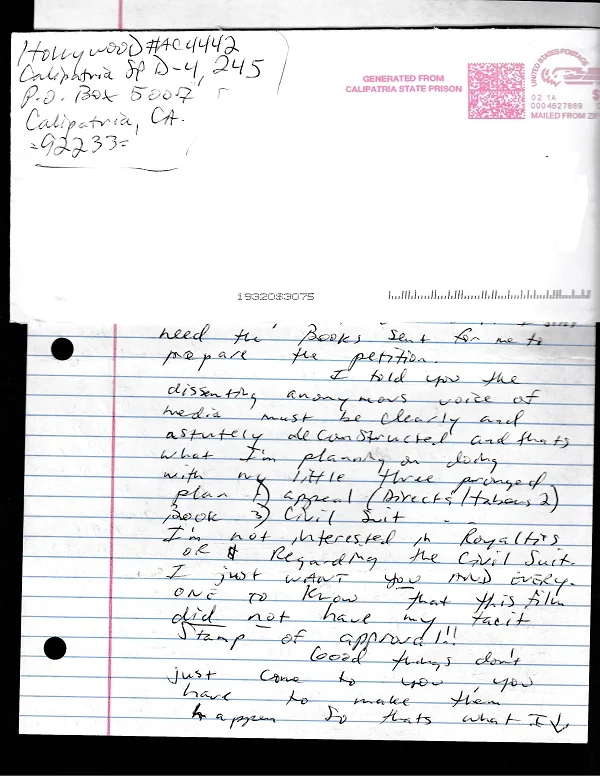 Hollywood #AC4442
Calipatria SP D-4, 245
P.O. Box 5007
Calipatria, CA.
=92233=
GENERATED FROM
CALIPATRIA STATE PRISON
UNITED STATES POSTAGE
02 1A
0004627869
MAILED FROM ZIP
19320$3075
need the Books sent for me to
prepare the petition.
I told you the
dissenting anonymous voice of
media must be clearly and
astutely deconstructed and thats
what I'm planning on doing
with my little three pronged
plan 1) appeal (Directs/Habeus 2)
Book 3) Civil Suit
I'm not interested in Royaltis
OR $ Regarding the Civil Suit.
I just WANT you AND EVERY-
ONE TO KNOW that this film
did not have my tacit
stamp of approval!!
Good things don't
just come to you, you
have to make them
happen so thats what I↓